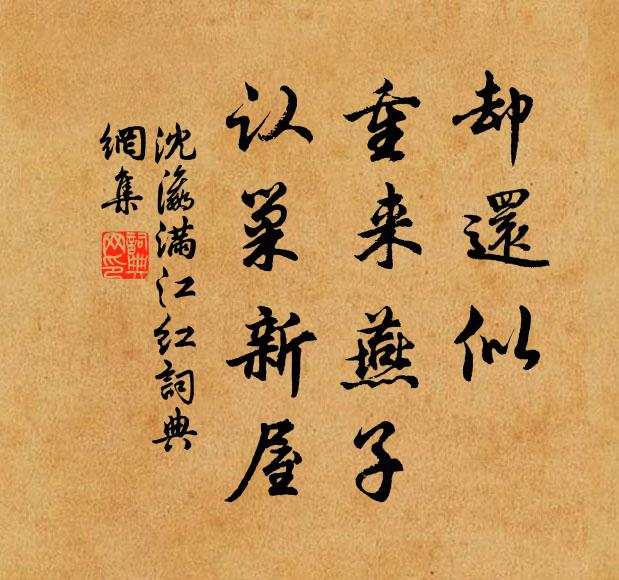 却還似
重来燕子
认巢新屋
沈瀛满江红詞典
網集
詞典
网印